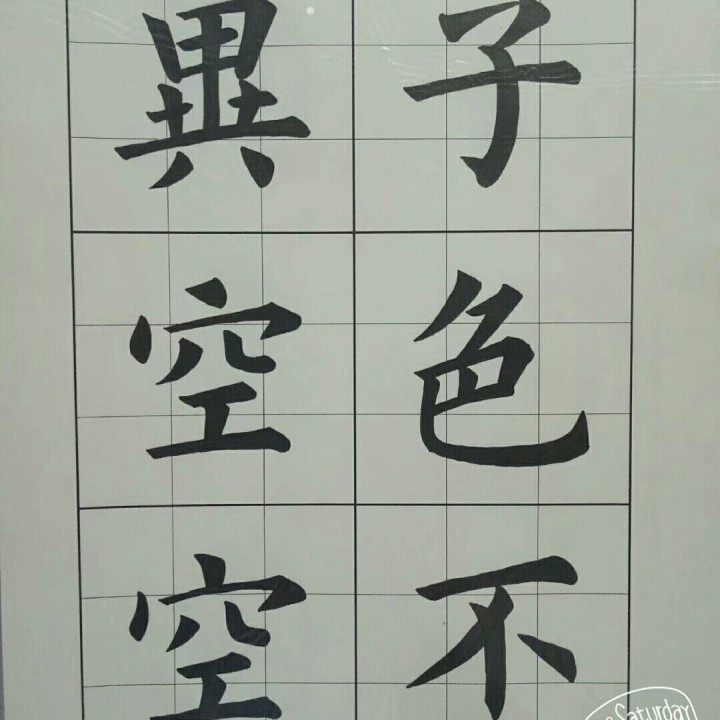 子色不
異空空
Saturday